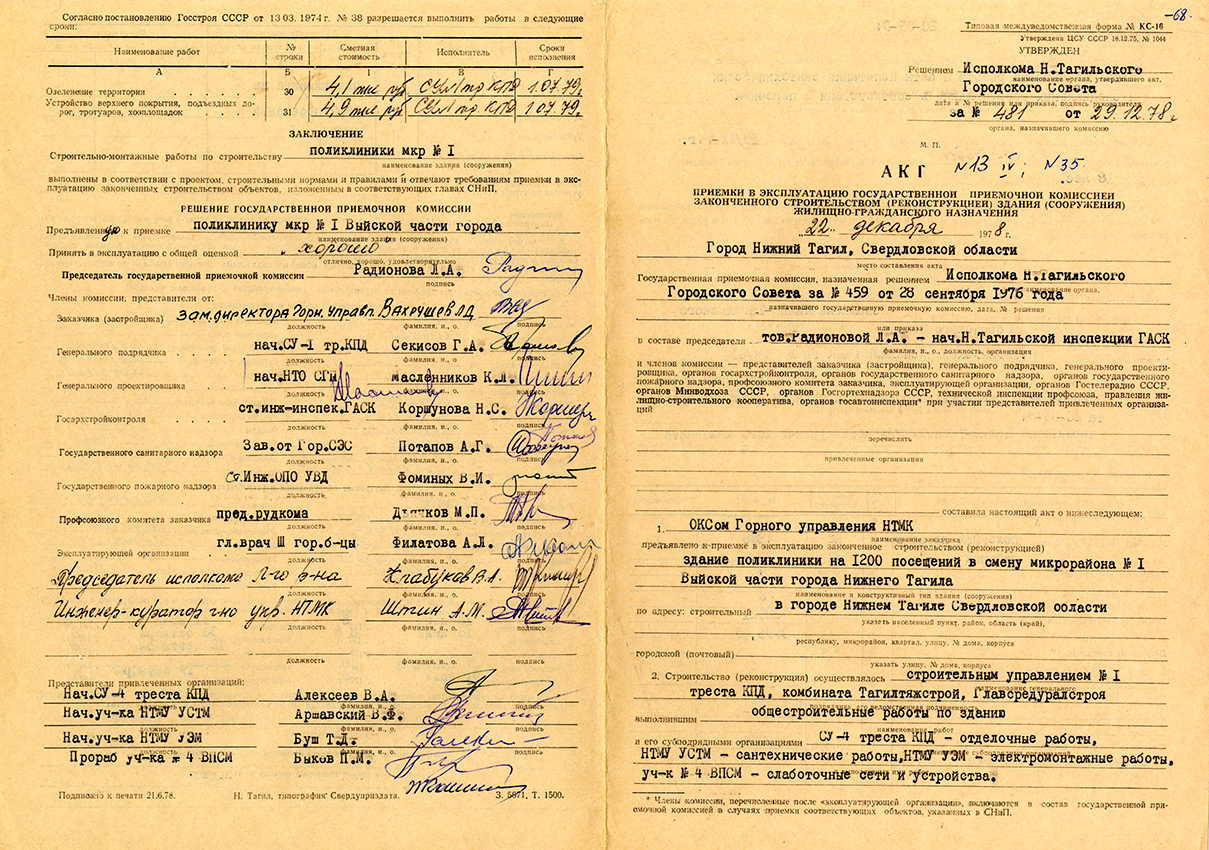 Согласно постановлению Госстроя СССР от 13 03. 1974 г. № 38 разрешается выполнить работы в следующие
сроки:
Наименование работ № строки Сметная стоимость Исполнитель Сроки исполнения
А Б I В Г
Озеленение территории 30 4,1 тыс руб СУ-1 тр КПД 1.07.79.
Устройство верхнего покрытия, подъездных до-
рог, тротуаров, хозплощадок 31 4,9 тыс руб СУ-1 тр КПД 1.07.79.
ЗАКЛЮЧЕНИЕ
Строительно-монтажные работы по строительству поликлиники мкр № I
наименование здания (сооружения)
выполнены в соответствии с проектом, строительными нормами и правилами и отвечают требованиям приемки в экс-
плуатацию законченных строительством объектов, изложенным в соответствующих главах СНиП.
РЕШЕНИЕ ГОСУДАРСТВЕННОЙ ПРИЕМОЧНОЙ КОМИССИИ
Предъявленную к приемке поликлинику мкр № I Выйской части города
наименование здания (сооружения)
Принять в эксплуатацию с общей оценкой „хорошо"
отлично, хорошо, удовлетворительно
Председатель государственной приемочной комиссии Радионова Л.А.
подпись
Члены комиссии, представители от:
Заказчика (застройщика) зам.директора Горн. управл. Вахрушев Л.Д.
должность фамилия, и., о. подпись
Генерального подрядчика нач.СУ-I тр.КПД Секисов Г.А.
должность фамилия, и., о. подпись
Генерального проектировщика нач.НТО СГП Масленников К.Л.
должность фамилия, и., о. подпись
Госархстройконтроля ст.инж-инспек.ГАСК Коршунова Н.С.
должность фамилия, и., о. подпись
Государственного санитарного надзора Зав.от Гор.СЭС Потапов А.Г.
должность фамилия, и., о. подпись
Государственного пожарного надзора Ст.Инж.ОПО УВД Фоминых В.И.
должность фамилия, и., о. подпись
Профсоюзного комитета заказчика пред.рудкома Дьячков М.П.
должность фамилия, и., о. подпись
Эксплуатирующей организации гл.врач Ш гор.б-цы Филатова А.Л.
должность фамилия, и., о. подпись
Председатель исполкома Л-го р-на Клабуков В.А.
должность фамилия, и., о. подпись
Инженер-куратор г-но упр. НТМК Штин А.М.
должность фамилия, и., о. подпись
должность фамилия, и., о. подпись
Представители привлеченных организаций:
Нач.СУ-4 треста КПД Алексеев В.А.
Нач.уч-ка НТМУ УСТМ Аршавский В.Ф.
Нач.уч-ка НТМУ УЭМ Буш Т.Д.
Прораб уч-ка № 4 ВПСМ Быков П.М.
Подписано к печати 21.6.78. Н. Тагил, типография Свердуприздата. З. 5671, Т. 1500.
-68-
Типовая междуведомственная форма № КС-16
Утверждена ЦСУ СССР 18.12.75, № 1044
УТВЕРЖДЕН
Решением Исполкома Н.Тагильского
наименование органа, утвердившего акт,
Городского Совета
дата и № решения или приказа, подпись руководителя
за № 481 от 29.12.78г
органа, назначившего комиссию
М. П.
АКТ №13 IV; №35
ПРИЕМКИ В ЭКСПЛУАТАЦИЮ ГОСУДАРСТВЕННОЙ ПРИЕМОЧНОЙ КОМИССИЕЙ
ЗАКОНЧЕННОГО СТРОИТЕЛЬСТВОМ (РЕКОНСТРУКЦИЕЙ) ЗДАНИЯ (СООРУЖЕНИЯ)
ЖИЛИЩНО-ГРАЖДАНСКОГО НАЗНАЧЕНИЯ
„22„ декабря 1978 г.
Город Нижний Тагил, Свердловской области
место составления акта
Государственная приемочная комиссия, назначенная решением Исполкома Н.Тагильского
наименование органа,
Городского Совета за № 459 от 28 сентября 1976 года
назначившего государственную приемочную комиссию, дата, № решения
или приказа
в составе председателя тов.Радионовой Л.А. - нач.Н.Тагильской инспекции ГАСК
фамилия, и., о., должность, организация
и членов комиссии — представителей заказчика (застройщика), генерального подрядчика, генерального проекти-
ровщика, органов госархстройконтроля, органов государственного санитарного надзора, органов государственного
пожарного надзора, профсоюзного комитета заказчика, эксплуатирующей организации, органов Гостелерадио СССР,
органов Минводхоза СССР, органов Госгортехнадзора СССР, технической инспекции профсоюза, правления жи-
лищно-строительного кооператива, органов госавтоинспекции* при участии представителей привлеченных организа-
ций
перечислить
привлеченные организации
составила настоящий акт о нижеследующем:
1. ОКСом Горного управления НТМК
наименование заказчика
предъявлено к приемке в эксплуатацию законченное строительством (реконструкцией)
здание поликлиники на I200 посещений в смену микрорайона № I
Выйской части города Нижнего Тагила
наименование и конструктивный тип здания (сооружения)
по адресу: строительный в городе Нижнем Тагиле Свердловской области
указать населенный пункт, район, область (край),
республику, микрорайон, квартал, улицу, № дома, корпуса
городской (почтовый)
указать улицу, № дома, корпуса
2. Строительство (реконструкция) осуществлялось строительным управлением № I
наименование генерального
треста КПД, комбината Тагилтяжстрой, Главсредуралстроя
подрядчика, его ведомственная подчиненность
выполнившим общестроительные работы по зданию
наименование работ
и его субподрядными организациями СУ-4 треста КПД - отделочные работы,
наименование субподрядных организаций
НТМУ УСТМ - сантехнические работы,НТМУ УЭМ - электромонтажные работы,
уч-к № 4 ВПСМ - слаботочные сети и устройства.
* Члены комиссии, перечисленные после «эксплуатирующей организации», включаются в состав государственной при-
емочной комиссией в случаях приемки соответствующих объектов, указанных в СНиП.